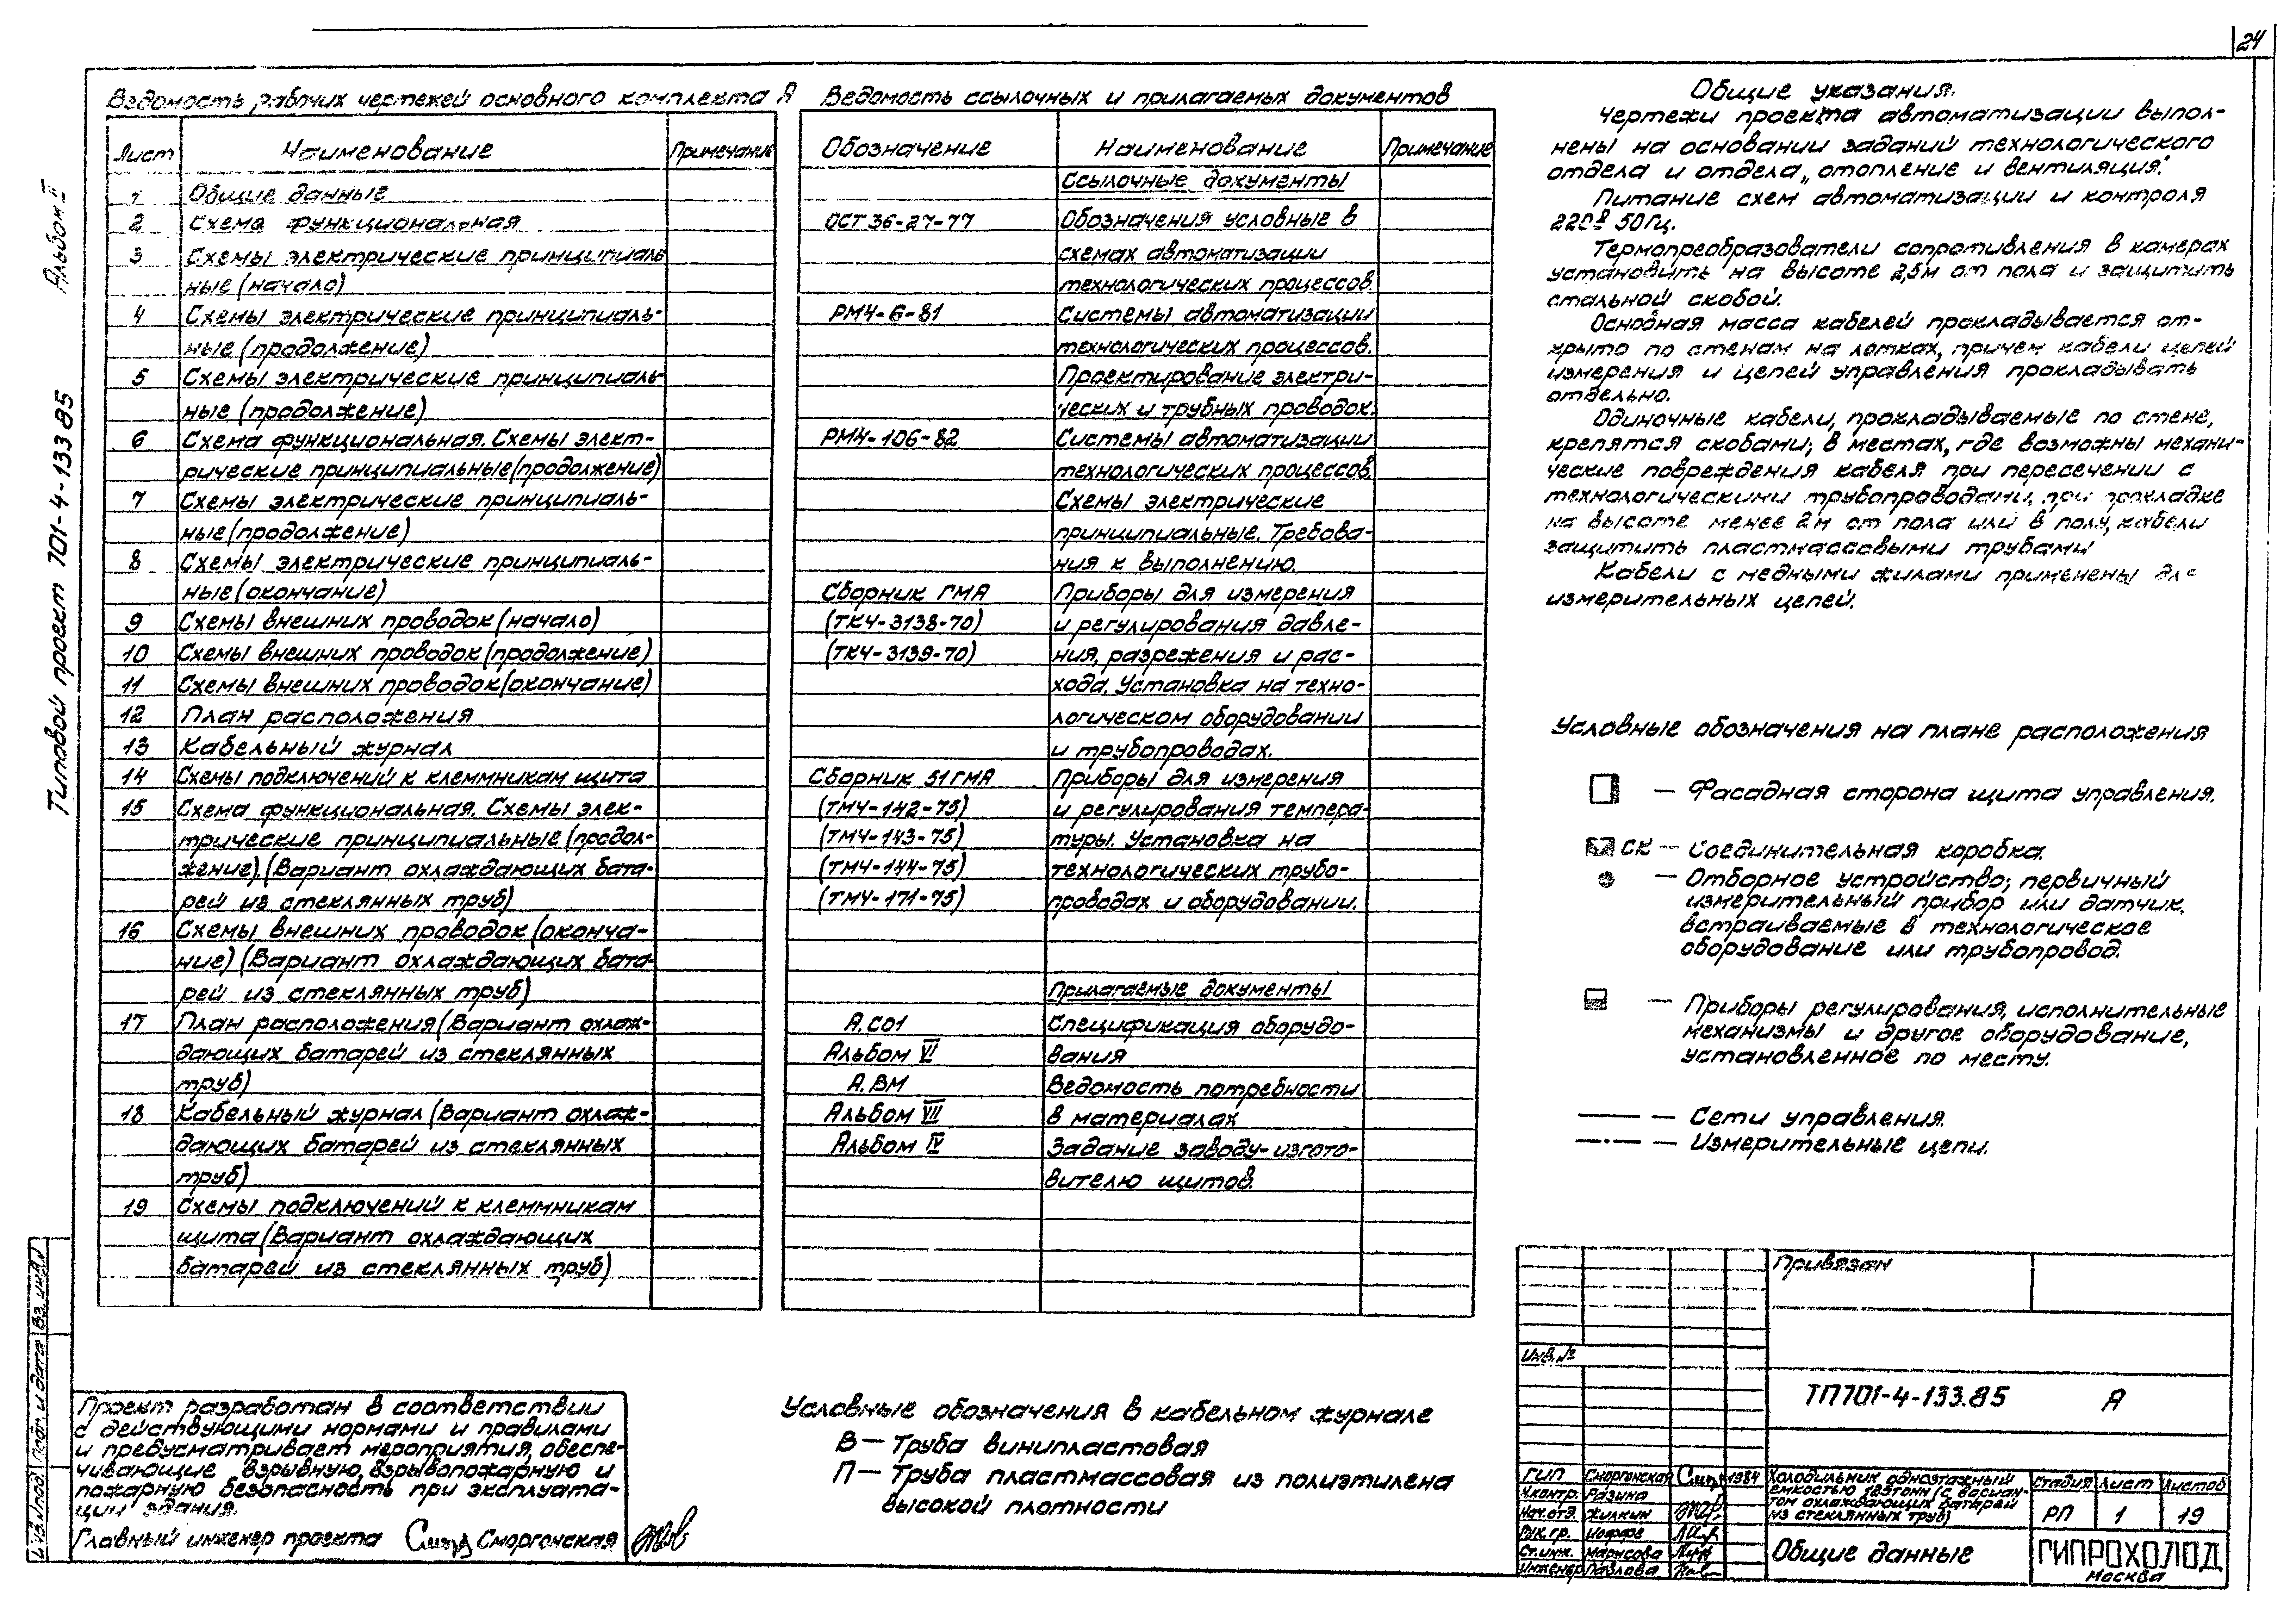 24
Альбом II
Типовой проект 701-4-133 85
Ведомость рабочих чертежей основного комплекта А
Лист Наименование Примечание
1 Общие данные
2 Схема функциональная
3 Схемы электрические принципиаль
ные (начало)
4 Схемы электрические принципиаль-
ные (продолжение)
5 Схемы электрические принципиаль-
ные (продолжение)
6 Схема функциональная. Схемы элект-
рические принципиальные (продолжение)
7 Схемы электрические принципиаль-
ные (продолжение)
8 Схемы электрические принципиаль-
ные (окончание)
9 Схемы внешних проводок (начало)
10 Схемы внешних проводок (продолжение)
11 Схемы внешних проводок (окончание)
12 План расположения
13 Кабельный журнал
14 Схемы подключений к клеммникам щита
15 Схема функциональная. Схемы элек-
трические принципиальные (продол-
жение). (Вариант охлаждающих бата-
рей из стеклянных труб)
16 Схемы внешних проводок (оконча-
ние) (Вариант охлаждающих бата-
рей из стеклянных труб)
17 План расположения (Вариант охлаж-
дающих батарей из стеклянных
труб)
18 Кабельный журнал (Вариант охлаж-
дающих батарей из стеклянных
труб)
19 Схемы подключений к клеммникам
щита (Вариант охлаждающих
батарей из стеклянных труб)
Ведомость ссылочных и прилагаемых документов
Обозначение Наименование Примечание
Ссылочные документы
ОСТ 36-27-77 Обозначения условные в
схемах автоматизации
технологических процессов.
РМ4-6-81 Системы автоматизации
технологических процессов.
Проектирование электри-
ческих и трубных проводок.
РМ4-106-82 Системы автоматизации
технологических процессов.
Схемы электрические
принципиальные. Требова-
ния к выполнению.
Сборник ГМА Приборы для измерения
(ТК4-3138-70) и регулирования давле-
(ТК4-3139-70) ния, разрежения и рас-
хода. Установка на техно-
логическом оборудовании
и трубопроводах.
Сборник 51 ГМА Приборы для измерения
(ТМ4-142-75) и регулирования темпера-
(ТМ4-143-75) туры. Установка на
(ТМ4-144-75) технологических трубо-
(ТМ4-171-75) проводах и оборудовании.
Прилагаемые документы
А.СО1 Спецификация оборудо-
Альбом VI вания
А.ВМ Ведомость потребности
Альбом VII в материалах
Альбом IV Задание заводу-изгото-
вителю щитов.
Общие указания.
Чертежи проекта автоматизации выпол-
нены на основании заданий технологического
отдела и отдела „отопление и вентиляция".
Питание схем автоматизации и контроля
220В 50Гц.
Термопреобразователи сопротивления в камерах
установить на высоте 2,5м от пола и защитить
стальной скобой.
Основная масса кабелей прокладывается от-
крыто по стенам на лотках, причем кабели цепей
измерения и цепей управления прокладывать
отдельно.
Одиночные кабели, прокладываемые по стене,
крепятся скобами; в местах, где возможны механи-
ческие повреждения кабеля при пересечении с
технологическими трубопроводами, при прокладке
на высоте менее 2м от пола или в полу, кабели
защитить пластмассовыми трубами
Кабели с медными жилами применены для
измерительных цепей.
Условные обозначения на плане расположения
— Фасадная сторона щита управления.
СК — Соединительная коробка.
— Отборное устройство; первичный
измерительный прибор или датчик,
встраиваемые в технологическое
оборудование или трубопровод.
— Приборы регулирования, исполнительные
механизмы и другое оборудование,
установленное по месту.
— Сети управления.
— Измерительные цепи.
Проект разработан в соответствии
с действующими нормами и правилами
и предусматривает мероприятия, обеспе-
чивающие взрывную, взрывопожарную и
пожарную безопасность при эксплуата-
ции здания.
Главный инженер проекта Сморгонская
Условные обозначения в кабельном журнале
В — Труба винипластовая
П — Труба пластмассовая из полиэтилена
высокой плотности
Инв.№подл. Подп. и дата Вз. инв.№
Привязан
Инв.№
ТП701-4-133.85 А
ГИП Сморгонская 1984
Н.контр. Разина
Нач.отд. Жилкин
Рук.гр. Иоффе
Ст.инж. Марисова
Инженер Павлова
Холодильник одноэтажный
емкостью 185тонн (с вариан-
том охлаждающих батарей
из стеклянных труб)
Стадия Лист Листов
РП 1 19
Общие данные
ГИПРОХОЛОД
Москва